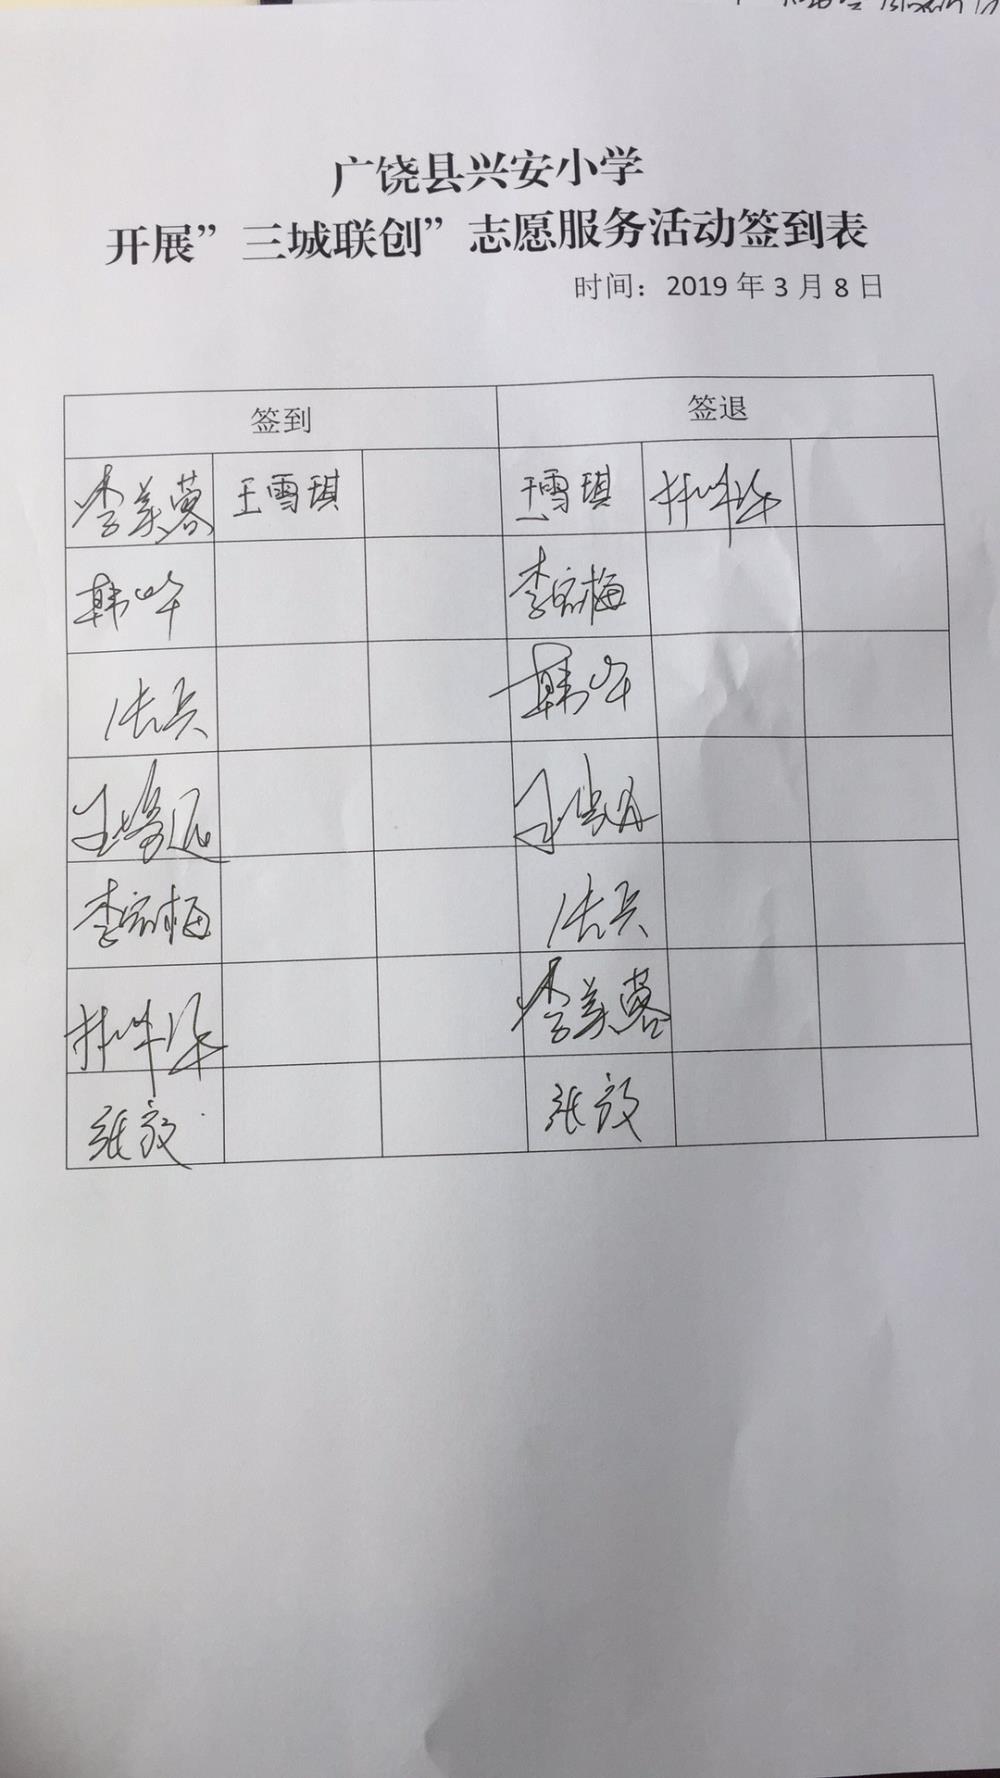 广饶县兴安小学
开展”三城联创”志愿服务活动签到表
时间：2019 年 3 月 8 日
签到 签退
李美蓉 王雪琪 王雪琪
韩峰 李宗梅
张兵 韩峰
李宗梅 张兵
李美蓉
张放 张放